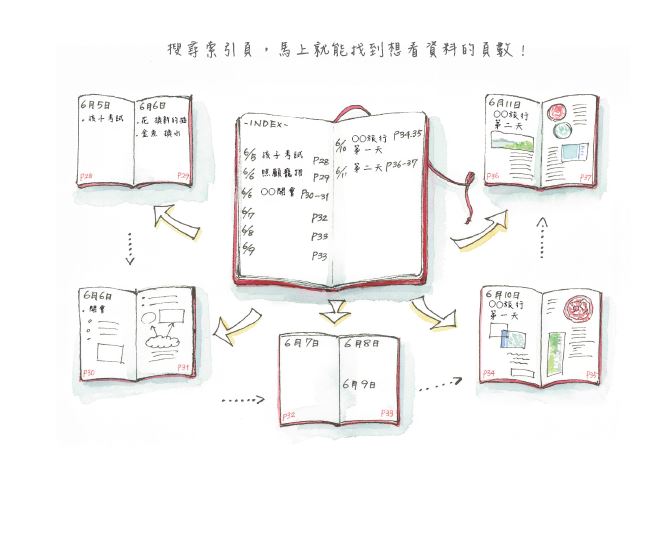 搜尋索引頁，馬上就能找到想看資料的頁數！
6月5日
・孩子考試
P28
6月6日
・金魚 換水
P29
-INDEX-
6/5 孩子考試 P28
6/6 照顧寵物 P29
6/6 〇〇開會 P30-31
6/7 P32
6/8 P33
6/9 P33
6/10 〇〇旅行 P34.35
第一天
6/11 第二天 P36-37
6月11日
〇〇旅行
第二天
P36
P37
6月6日
・開會
P30
P31
6月7日
P32
6月8日
6月9日
P33
6月10日
〇〇旅行
第一天
P34
P35